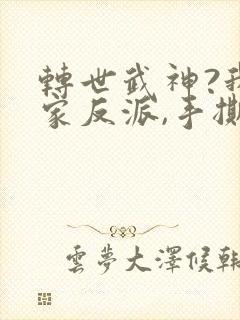 轉世武神?我
家反派,手撕
雲夢大澤候轉